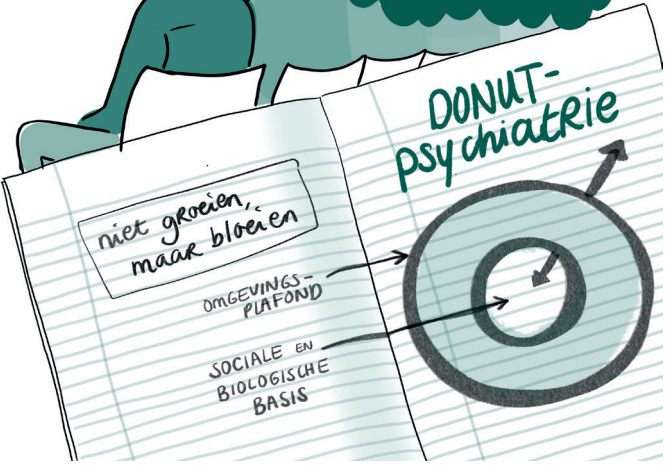 niet groeien,
maar bloeien
OMGEVINGS-
PLAFOND
SOCIALE EN
BIOLOGISCHE
BASIS
DONUT-
psychiatRie